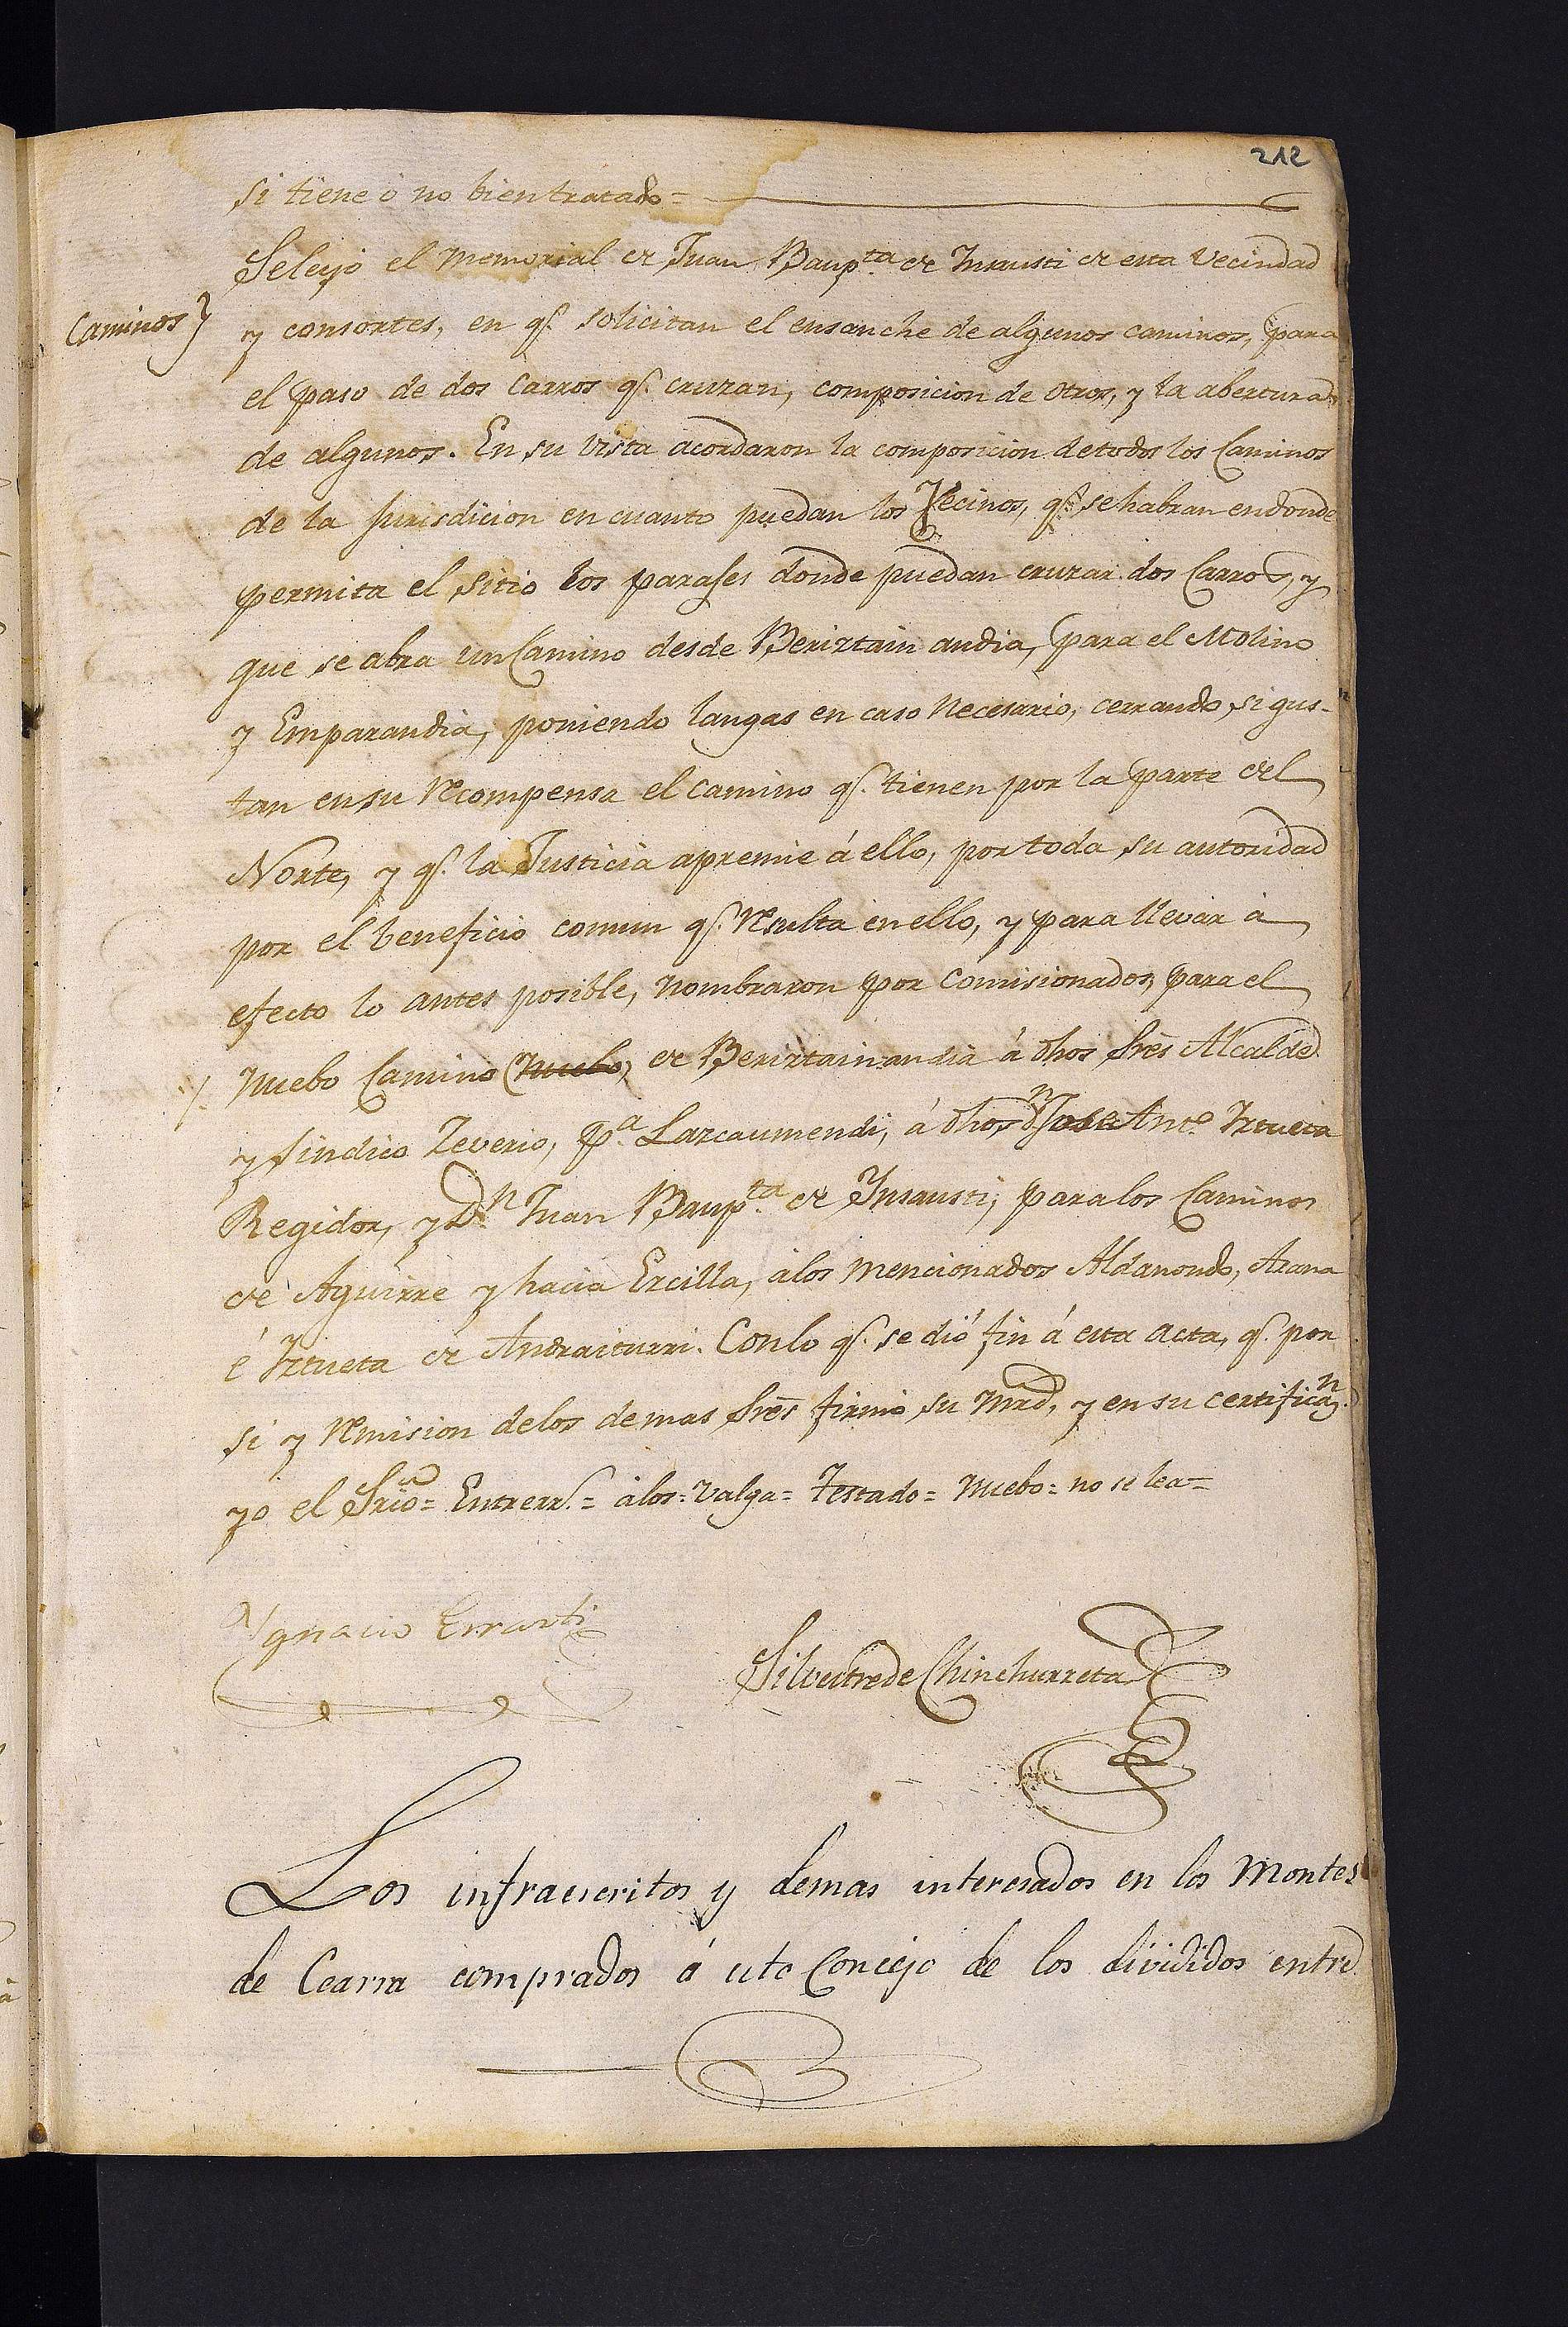 212
si tiene ó no bien tratado=
Se leyó el Memorial de Juan Baupta de Insausti de esta Vecindad
Caminos
y consortes, en qe. solicitan el ensanche de algunos caminos, para
el paso de dos Carros qe. cruzan, composicion de otros, y la abertura
de algunos. En su vista acordaron la composicion de todos los Caminos
de la jurisdicion en cuanto puedan los Vecinos, qe. se habran en donde
permita el sitio los parages donde puedan cruzar dos Carros, y
que se abra un Camino desde Beriztain andia, para el Molino
y Emparandia, poniendo langas en caso Necesario, cerrando, si gus-
tan en su Recompensa el camino qe. tienen por la parte del
Norte, y qe. la Justicia apremie á ello, por toda su autoridad
por el beneficio comun qe. Resulta en ello, y para llevar á
efecto lo antes posible, nombraron por Comisionados, para el
Nuebo Camino (Nuebo) de Beriztainandia á dhos Sres Alcalde
y sindico Zeverio, pa. Lazcaumendi, á dhos Dn Jose Anto. Iztueta
Regidor, y Dn Juan Baupta. de Insausti; para los Caminos
de Aguirre y hacia Ercilla, á los mencionados Aldanondo, Arana
é Iztueta de Andraiturri. Con lo qe. se dió fin á esta acta, qe. por
si y Remision de los demas Sres firmó su Mrd, y en su certifican.
yo el Srio= Entrerr.= á los= Valga= Testado= Nuebo= no se lea=
Ygnacio Errasti
Silvestre de Chinchurreta
Los infraescritos y demas interesados en los Montes
de Cearra comprados á este Concejo de los divididos entre